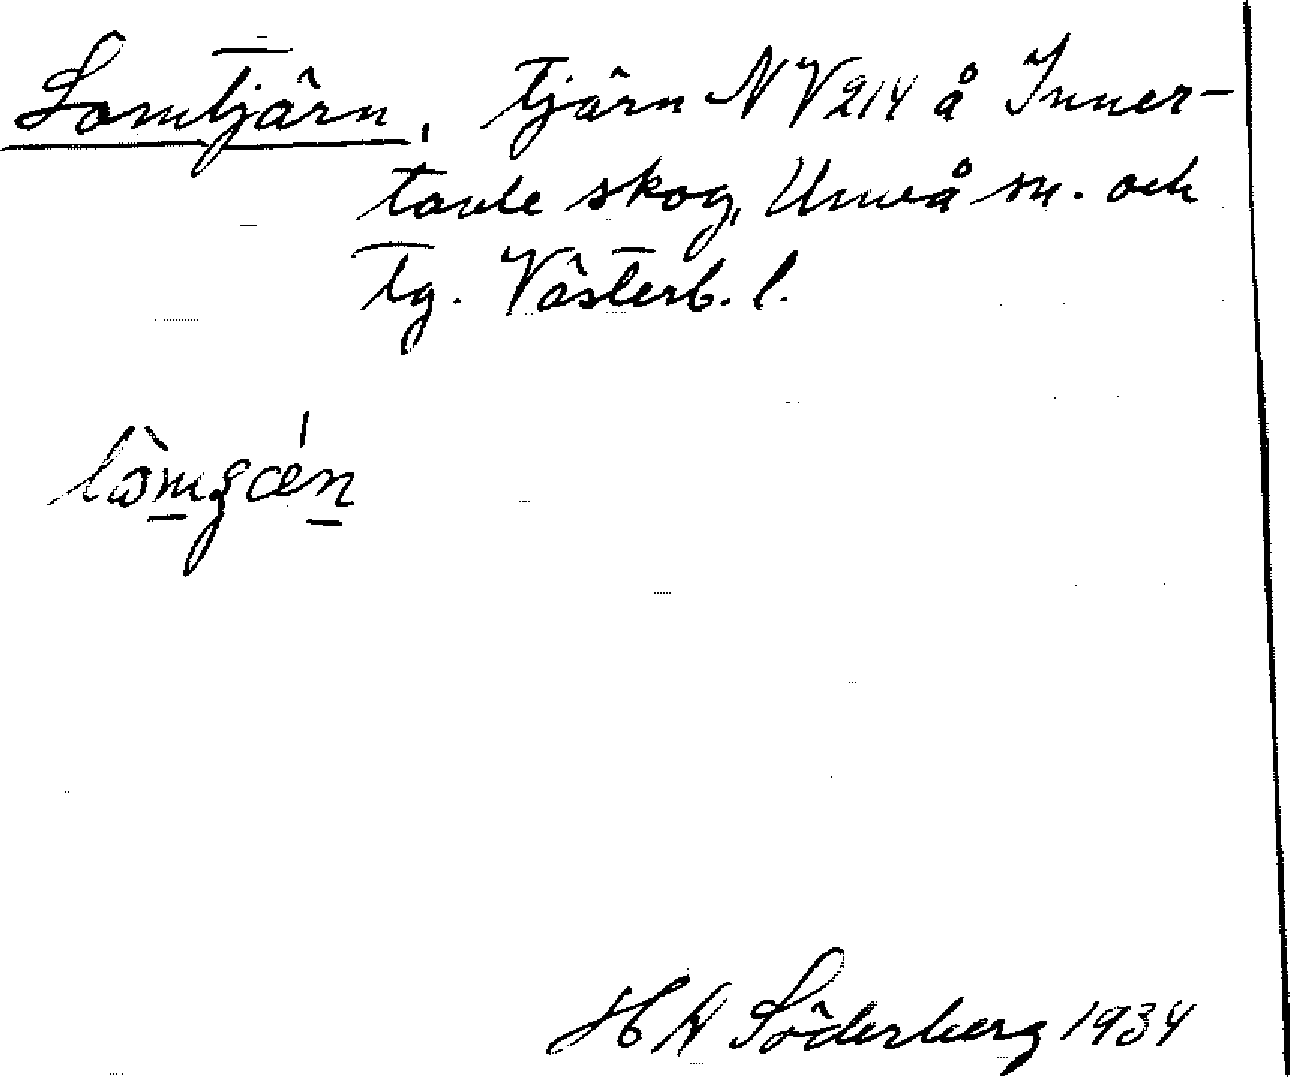 Lomtjärn, tjärn NV214 å Inner-
tavle skog, Umeå sn. och
tg. Västerb. l.
H N Söderberg 1934